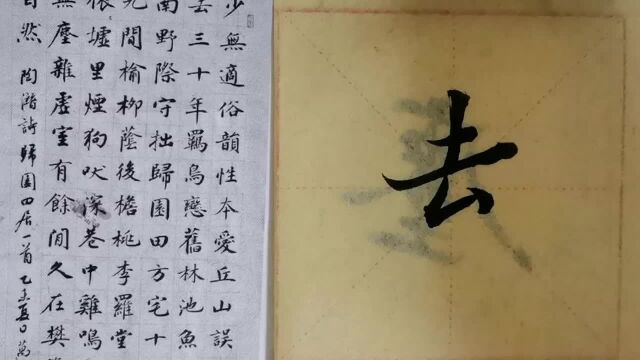 少無適俗韻性本愛丘山誤
去三十年羈鳥戀舊林池魚
南野際守拙歸園田方宅十
九間榆柳蔭後檐桃李羅堂
依墟里煙狗吠深巷中雞鳴
無塵雜虛室有餘閒久在樊
自然 陶潛詩歸園田居一首
去